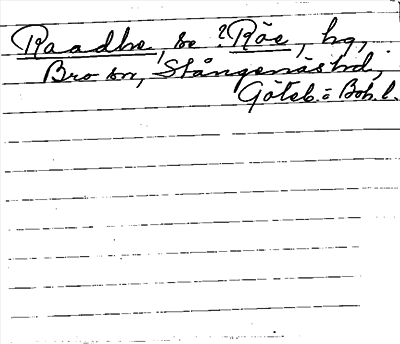 Raadhe, se ?Röe, hg,
Bro sn, Stångenäs hd,
Göteb.= Boh. l.